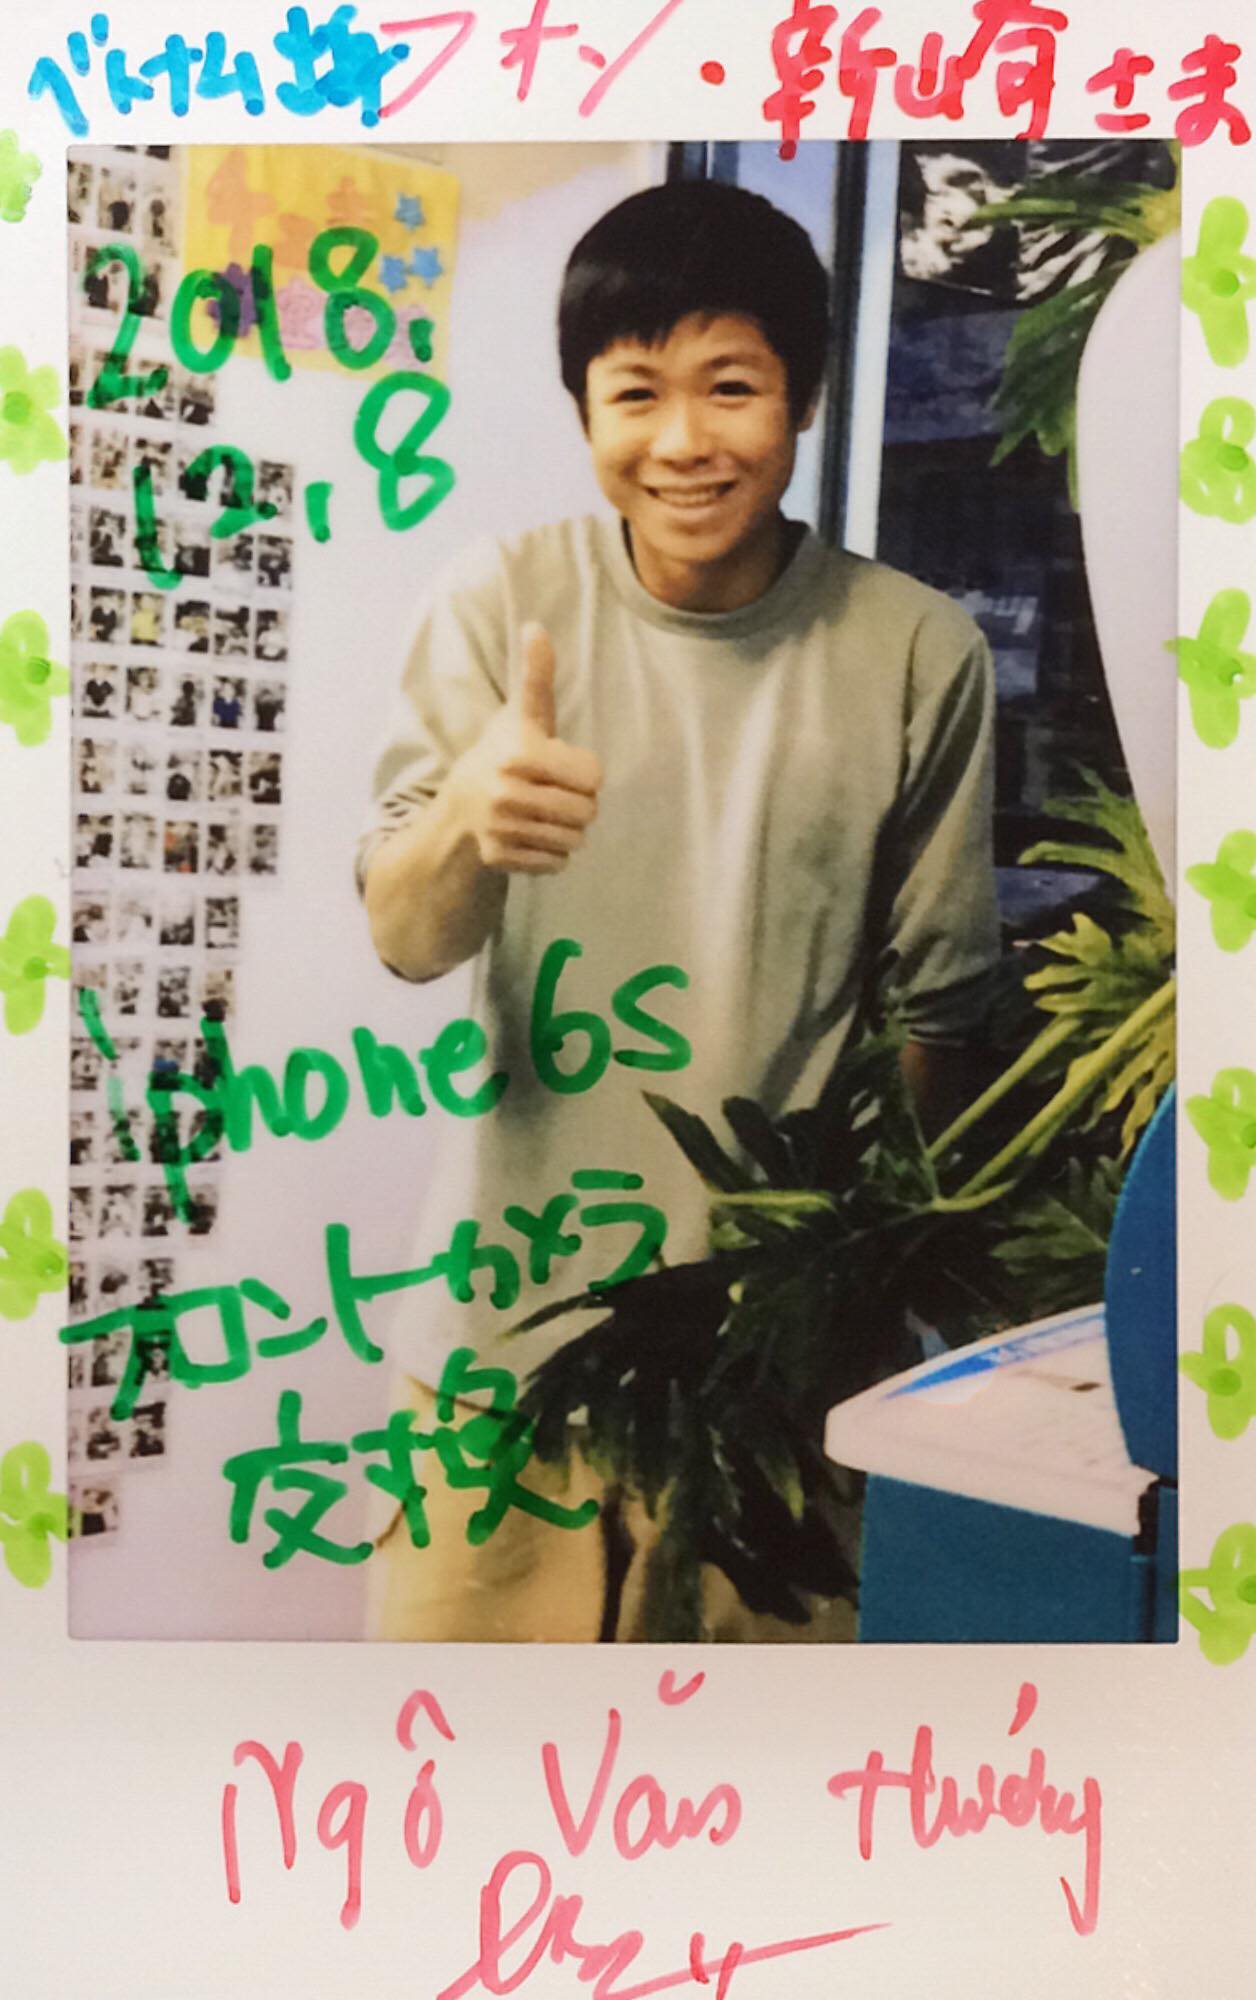 ベトナム 姓 フォン・新崎さま
2018.
12.8
iphone 6s
フロントカメラ
交換
Ngô Văn Hướng